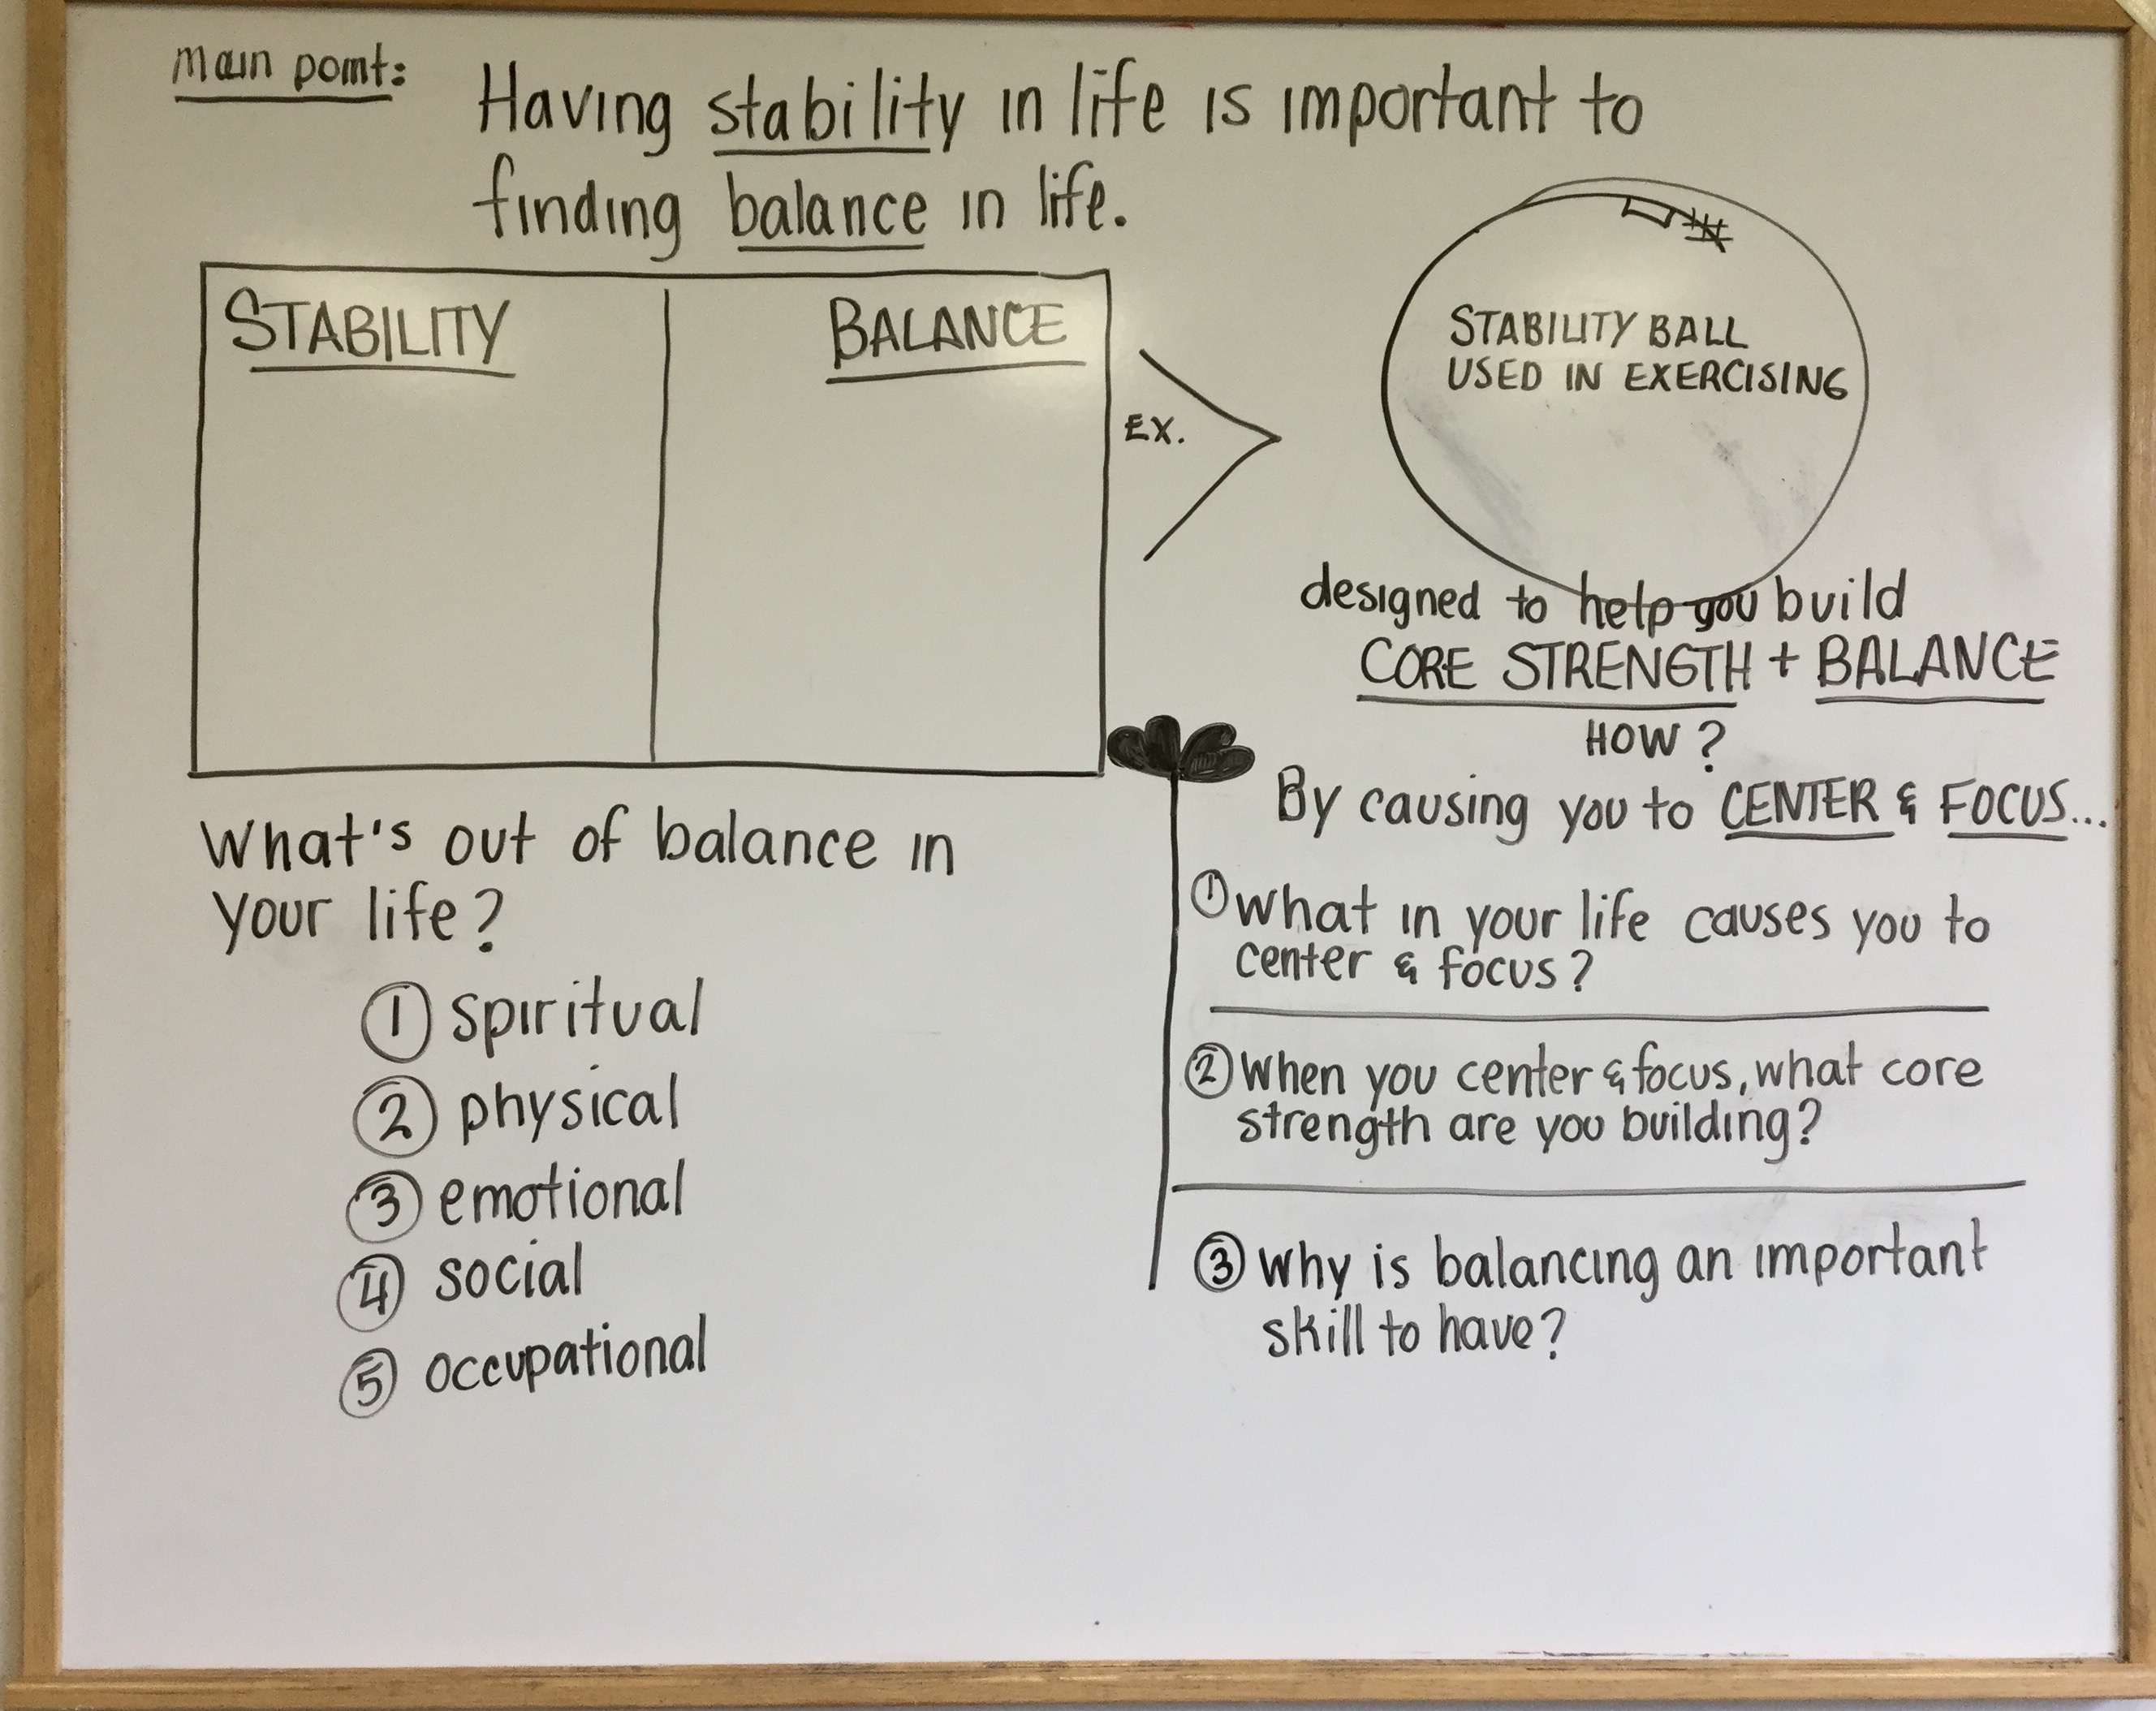 main point:
Having stability in life is important to
finding balance in life.
STABILITY
BALANCE
EX.
STABILITY BALL
USED IN EXERCISING
designed to help you build
CORE STRENGTH + BALANCE
HOW?
By causing you to CENTER & FOCUS...
① what in your life causes you to
center & focus?
② When you center & focus, what core
strength are you building?
③ why is balancing an important
skill to have?
What's out of balance in
your life?
① spiritual
② physical
③ emotional
④ social
⑤ occupational